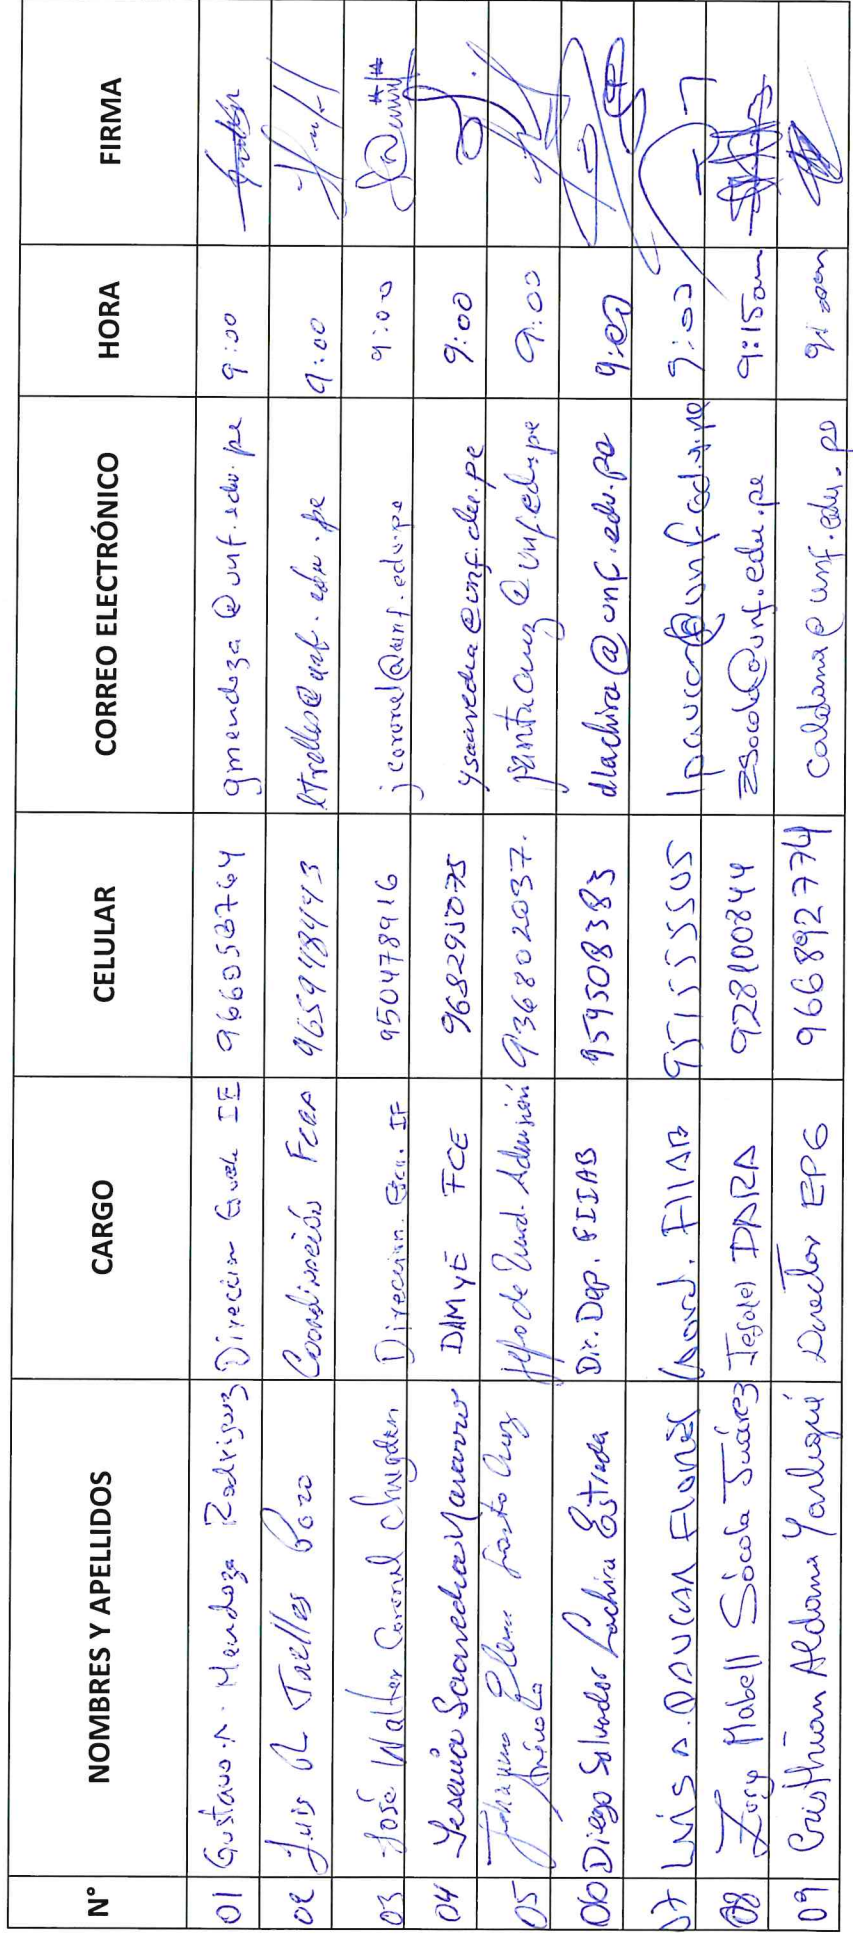 N° NOMBRES Y APELLIDOS CARGO CELULAR CORREO ELECTRÓNICO HORA FIRMA
01 Gustavo A. Mendoza Rodriguez Direccion Escuela IE gmendoza@unf.edu.pe 9:00
02 Luis Trelles Pozo Coordinación FCEA ltrelles@unf.edu.pe 9:00
03 José Walter Coronel Chugden Direccion. Escu. IF 950478916 jcoronel@unf.edu.pe 9:00
04 Yesenia Saavedra Navarro DAMyE FCE 968295075 ysaavedra@unf.edu.pe 9:00
05 Elena Santa Cruz Arévalo Jefa de Unid. Admisión 936802037. @unf.edu.pe 9:00
06 Diego Salvador Lachira Estrada Dir. Dep. FIIAB 959508383 dlachira@unf.edu.pe 9:00
07 Luis A. PAUCAR FLORES Coord. FIIAB lpaucar@unf.edu.pe 9:00
08 Zury Mabell Sócola Juárez Jefa(e) DARA 928100844 zsocola@unf.edu.pe 9:15am
09 Cristhian Aldana Yarlequé Director EPG 966892774 caldana@unf.edu.pe